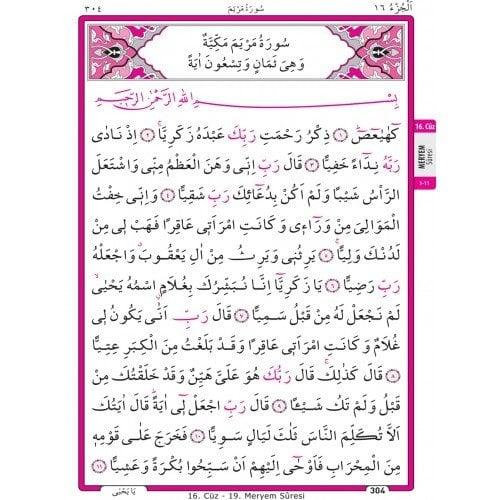 اَلْجُزْءُ ١٦ سُورَةُ مَرْيَمَ ٣٠٤
سُورَةُ مَرْيَمَ مَكِّيَّةٌ
وَهِىَ ثَمَانٍ وَتِسْعُونَ اٰيَةً
بِسْمِ اللّٰهِ الرَّحْمٰنِ الرَّحِيمِ
كٓهٰيٰعٓصٓ ﴿١﴾ ذِكْرُ رَحْمَتِ رَبِّكَ عَبْدَهُ زَكَرِيَّا ﴿٢﴾ اِذْ نَادٰى
رَبَّهُ نِدَٓاءً خَفِيًّا ﴿٣﴾ قَالَ رَبِّ اِنّ۪ى وَهَنَ الْعَظْمُ مِنّ۪ى وَاشْتَعَلَ
الرَّأْسُ شَيْبًا وَلَمْ اَكُنْ بِدُعَٓائِكَ رَبِّ شَقِيًّا ﴿٤﴾ وَاِنّ۪ى خِفْتُ
الْمَوَالِىَ مِنْ وَرَٓاء۪ى وَكَانَتِ امْرَاَت۪ى عَاقِرًا فَهَبْ ل۪ى مِنْ
لَدُنْكَ وَلِيًّا ﴿٥﴾ يَرِثُن۪ى وَيَرِثُ مِنْ اٰلِ يَعْقُوبَ وَاجْعَلْهُ
رَبِّ رَضِيًّا ﴿٦﴾ يَا زَكَرِيَّٓا اِنَّا نُبَشِّرُكَ بِغُلَامٍ اسْمُهُ يَحْيٰى
لَمْ نَجْعَلْ لَهُ مِنْ قَبْلُ سَمِيًّا ﴿٧﴾ قَالَ رَبِّ اَنّٰى يَكُونُ ل۪ى
غُلَامٌ وَكَانَتِ امْرَاَت۪ى عَاقِرًا وَقَدْ بَلَغْتُ مِنَ الْكِبَرِ عِتِيًّا
﴿٨﴾ قَالَ كَذٰلِكَ قَالَ رَبُّكَ هُوَ عَلَىَّ هَيِّنٌ وَقَدْ خَلَقْتُكَ مِنْ
قَبْلُ وَلَمْ تَكُ شَيْـًٔا ﴿٩﴾ قَالَ رَبِّ اجْعَلْ ل۪ٓى اٰيَةً قَالَ اٰيَتُكَ
اَلَّا تُكَلِّمَ النَّاسَ ثَلٰثَ لَيَالٍ سَوِيًّا ﴿١٠﴾ فَخَرَجَ عَلٰى قَوْمِه۪
مِنَ الْمِحْرَابِ فَاَوْحٰٓى اِلَيْهِمْ اَنْ سَبِّحُوا بُكْرَةً وَعَشِيًّا ﴿١١﴾
16. Cüz
MERYEM
Sûresi
1-11
يَا يَحْيٰى
16. Cüz - 19. Meryem Sûresi
304